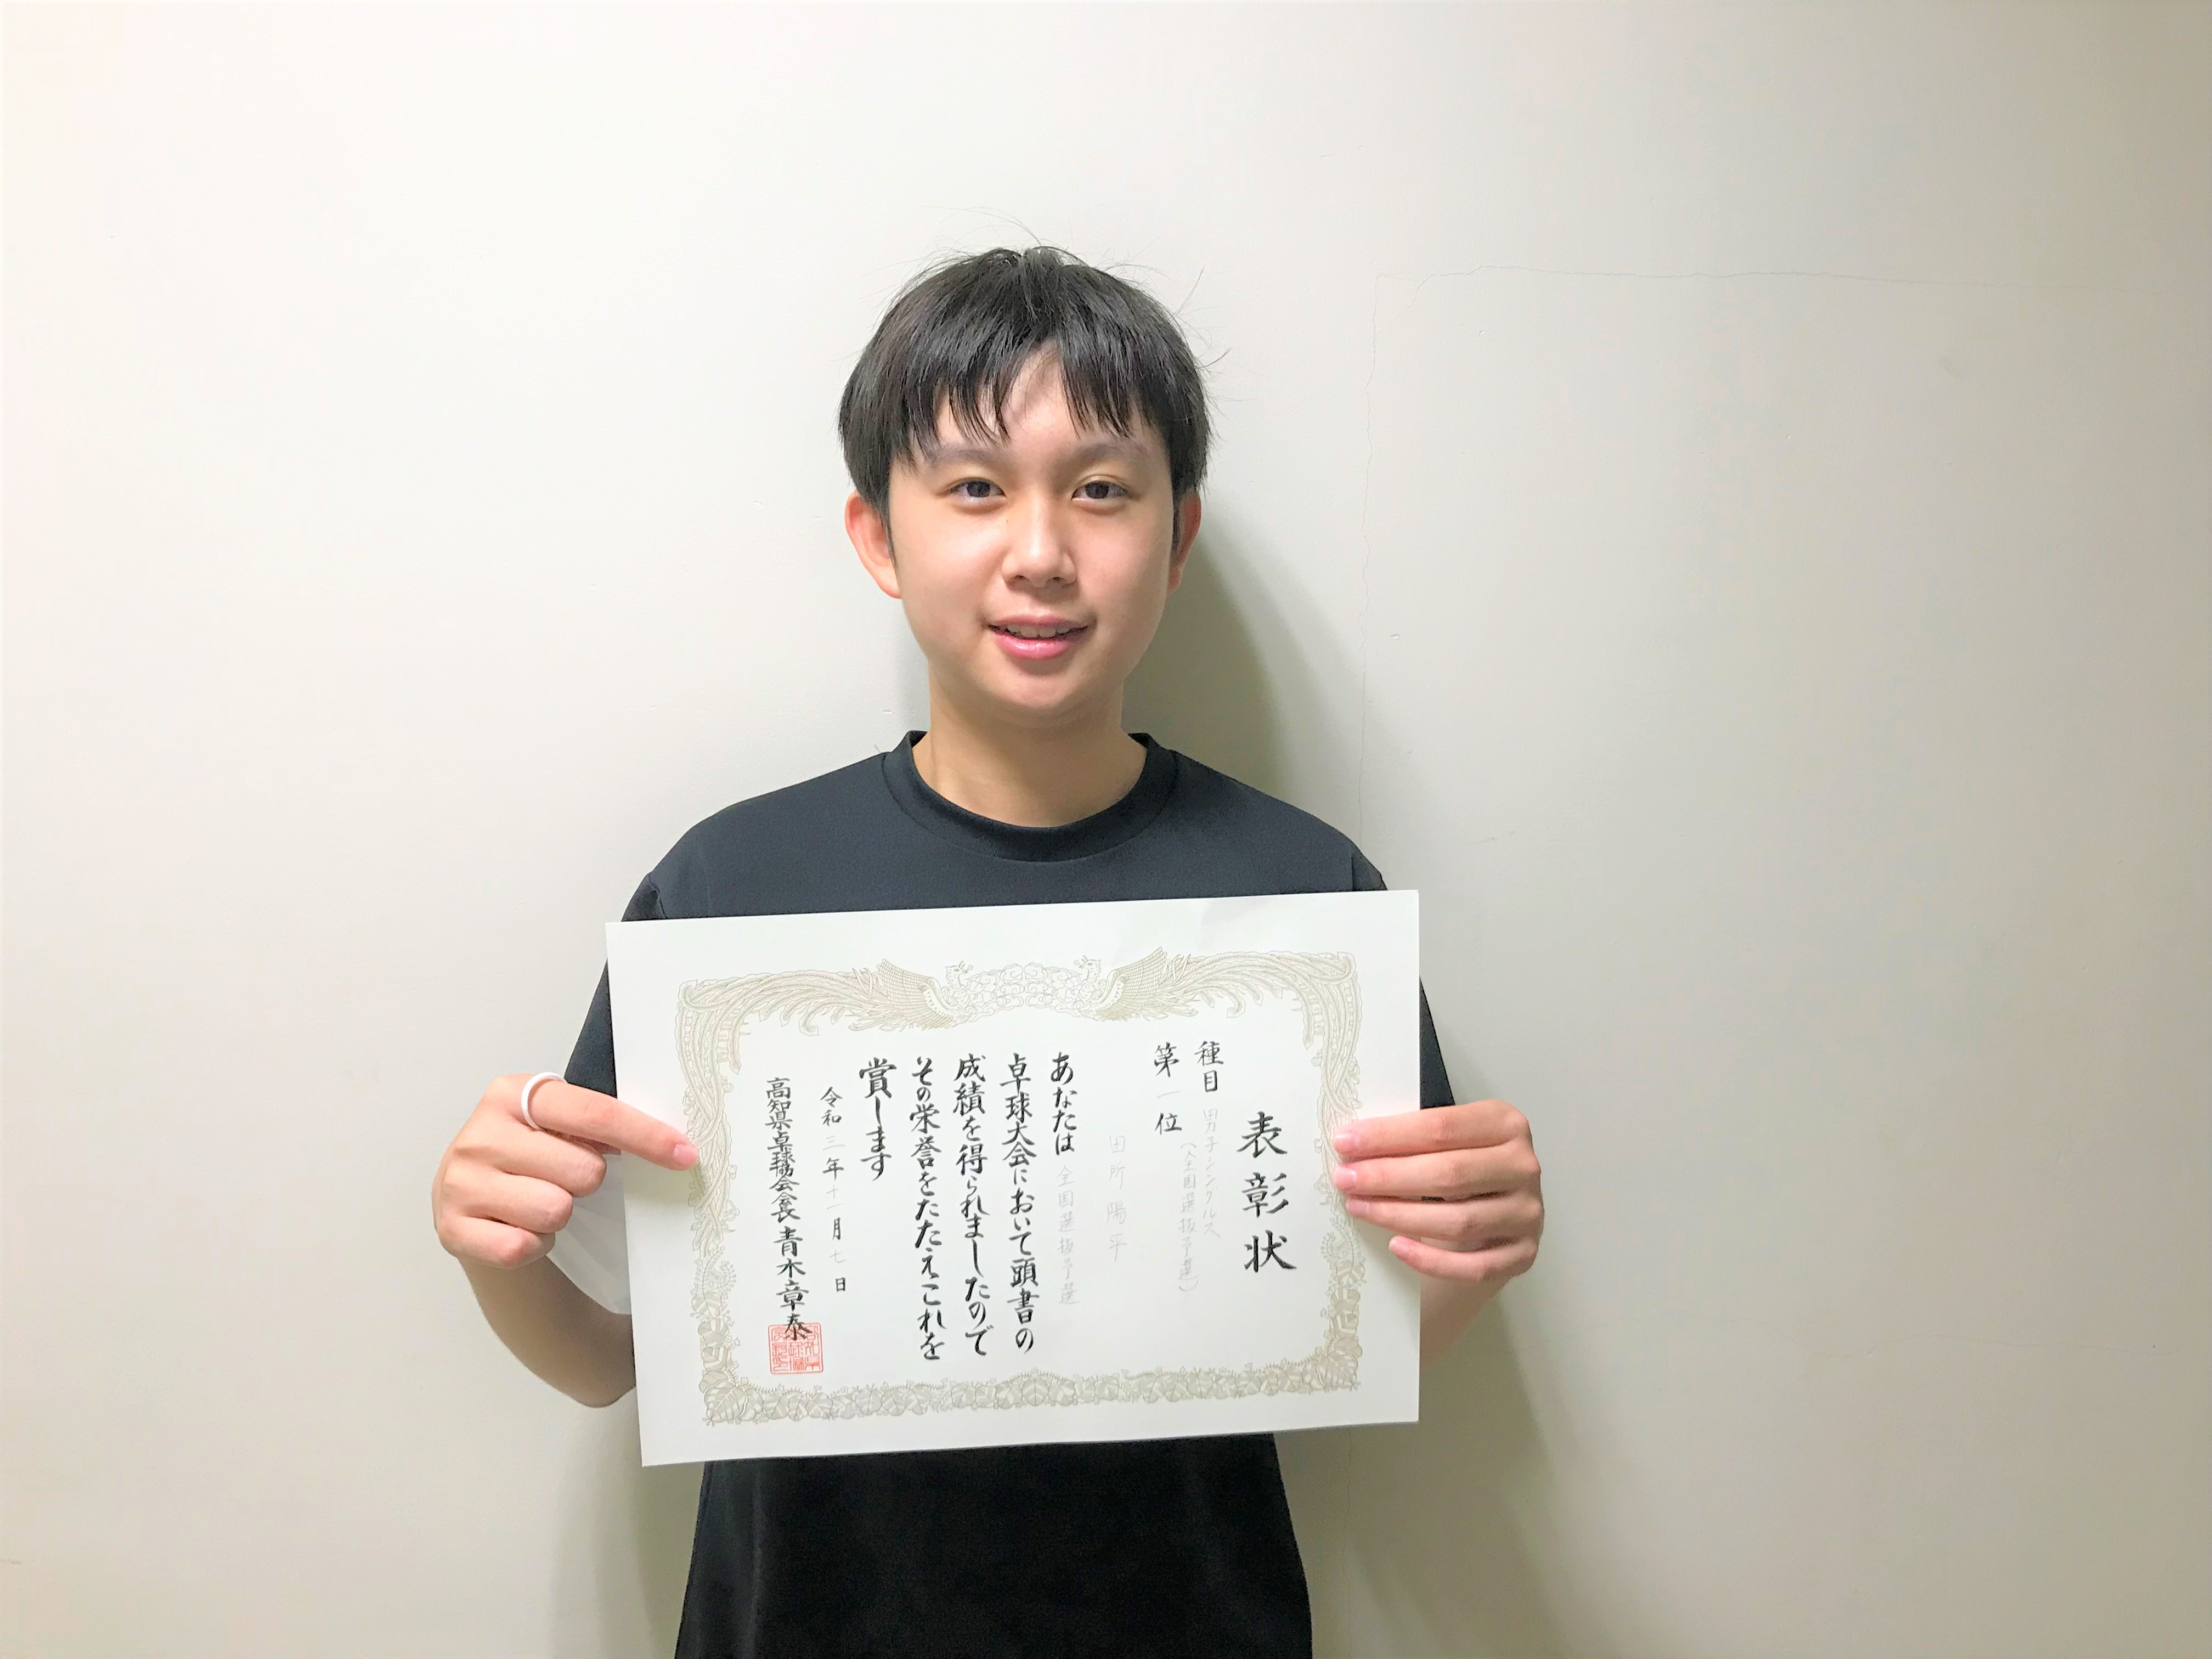 表彰状
種目 男子シングルス
(全国選抜予選)
第一位
田所陽平
あなたは 全国選抜予選
卓球大会において頭書の
成績を得られましたので
その栄誉をたたえこれを
賞します
令和三年十一月七日
高知県卓球協会会長 青木章泰